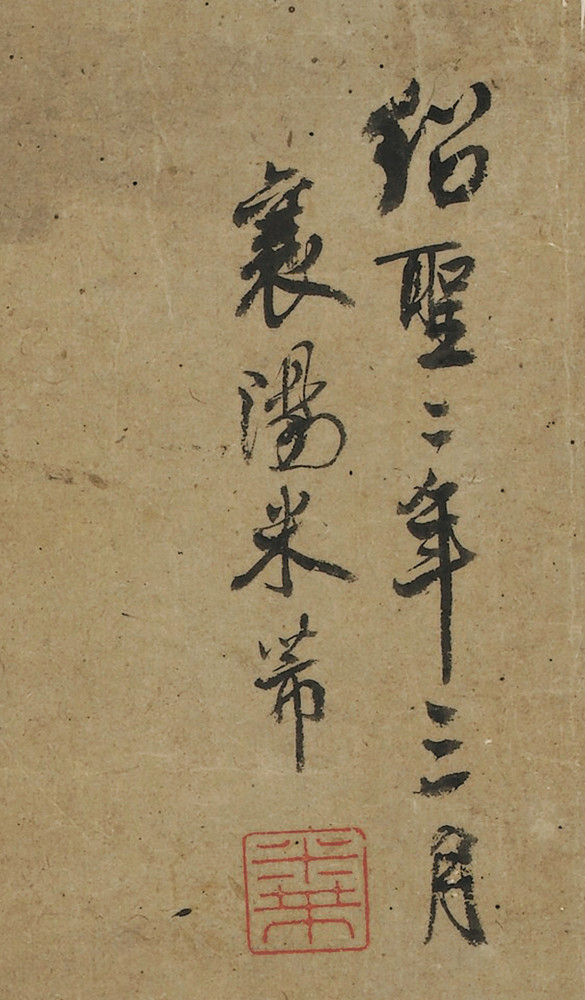 紹聖二年三月
襄陽米芾
米芾